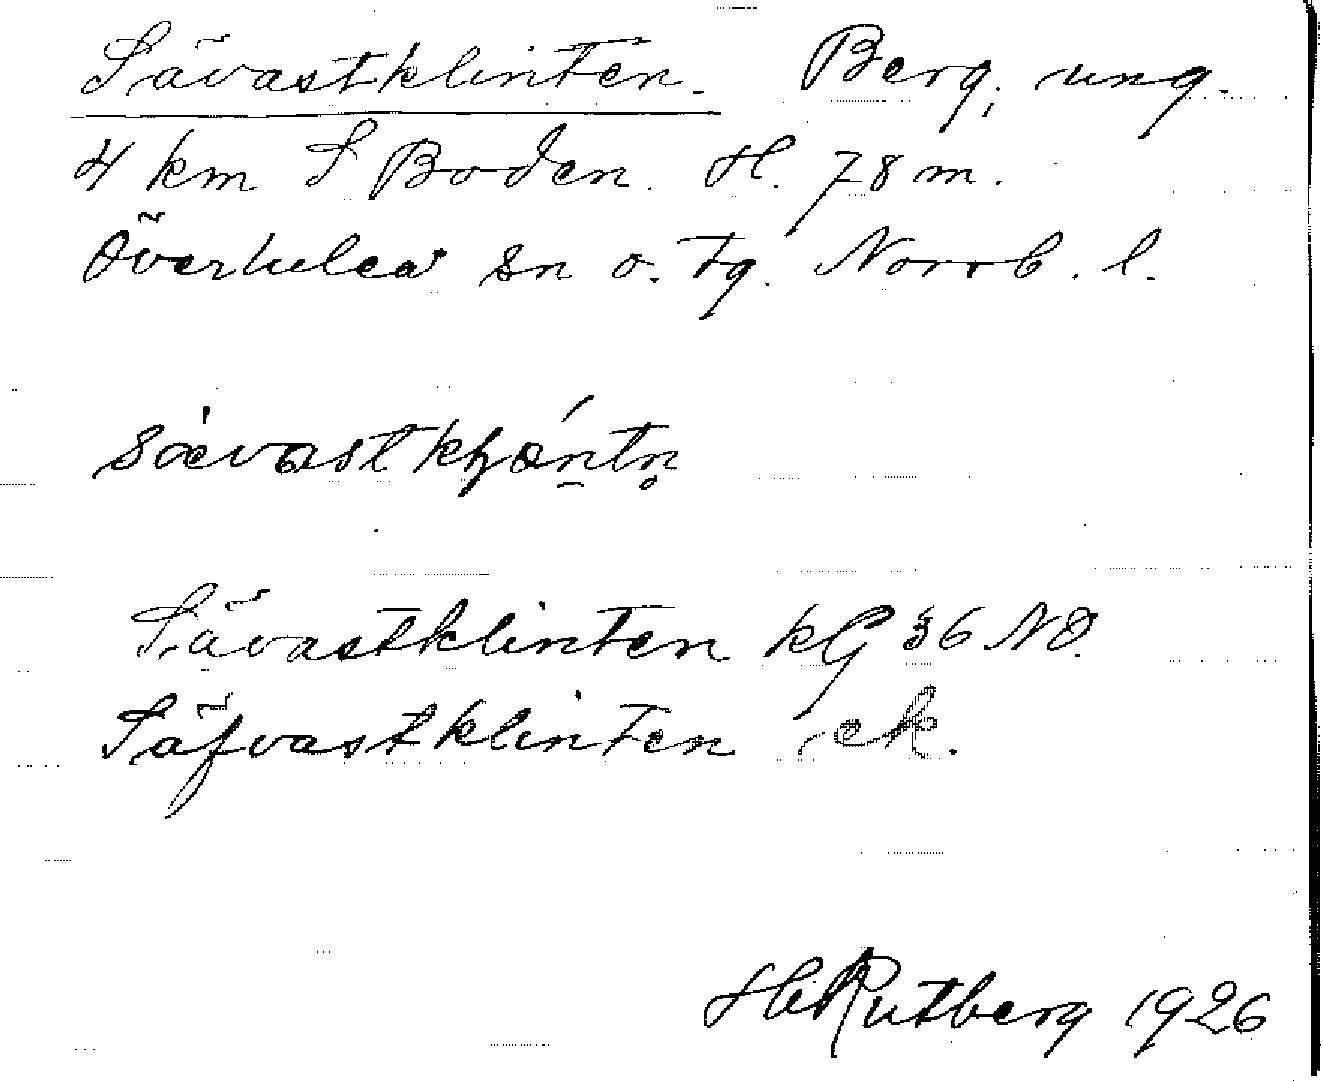 Sävastklinten. Berg, ung.
4 km S Boden. H. 78 m.
Överlulea sn o. tg. Norrb. l.
sævast
Sävastklinten kG 36 NO.
Säfvastklinten ek.
Hj Rutberg 1926